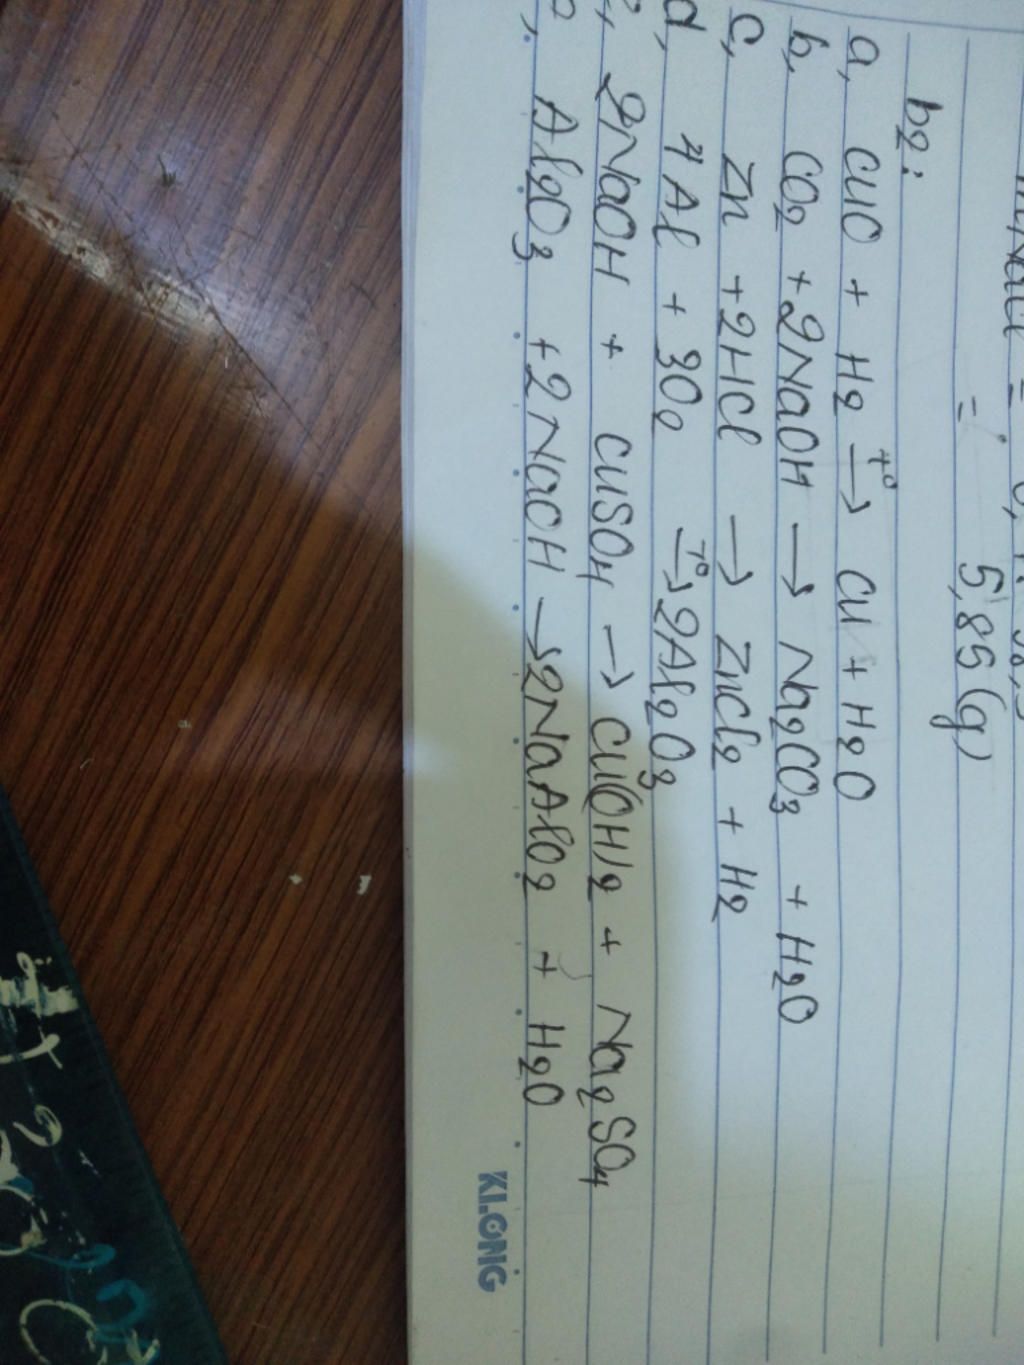 = 5,85(g)
b2:
a, CuO + H2 t° → Cu + H2O
b, CO2 + 2NaOH → Na2CO3 + H2O
c, Zn + 2HCl → ZnCl2 + H2
d, 4Al + 3O2 t° → 2Al2O3
2NaOH + CuSO4 → Cu(OH)2 + Na2SO4
Al2O3 + 2NaOH → 2NaAlO2 + H2O
KLONG